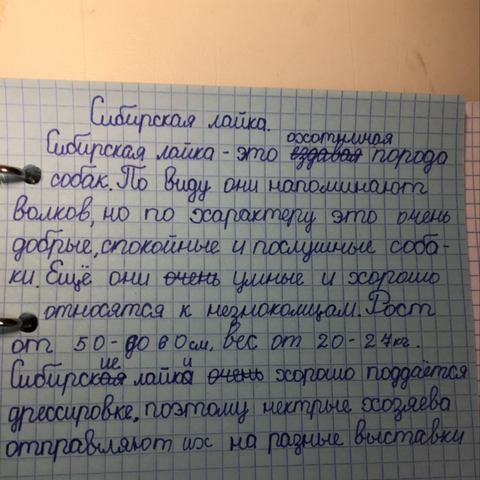 Сибирская лайка.
охотничная
Сибирская лайка - это ездавая порода
собак. По виду они напоминают
волков, но по характеру это очень
добрые, спокойные и послушные соба-
ки. Ещё они очень умные и хорошо
относятся к незнокомцам. Рост
от 50 - до 60 см, вес от 20 - 27 кг.
ие и
Сибирская лайка очень хорошо поддаётся
дрессировке, поэтому нектрые хозяева
отправляют их на разные выставки